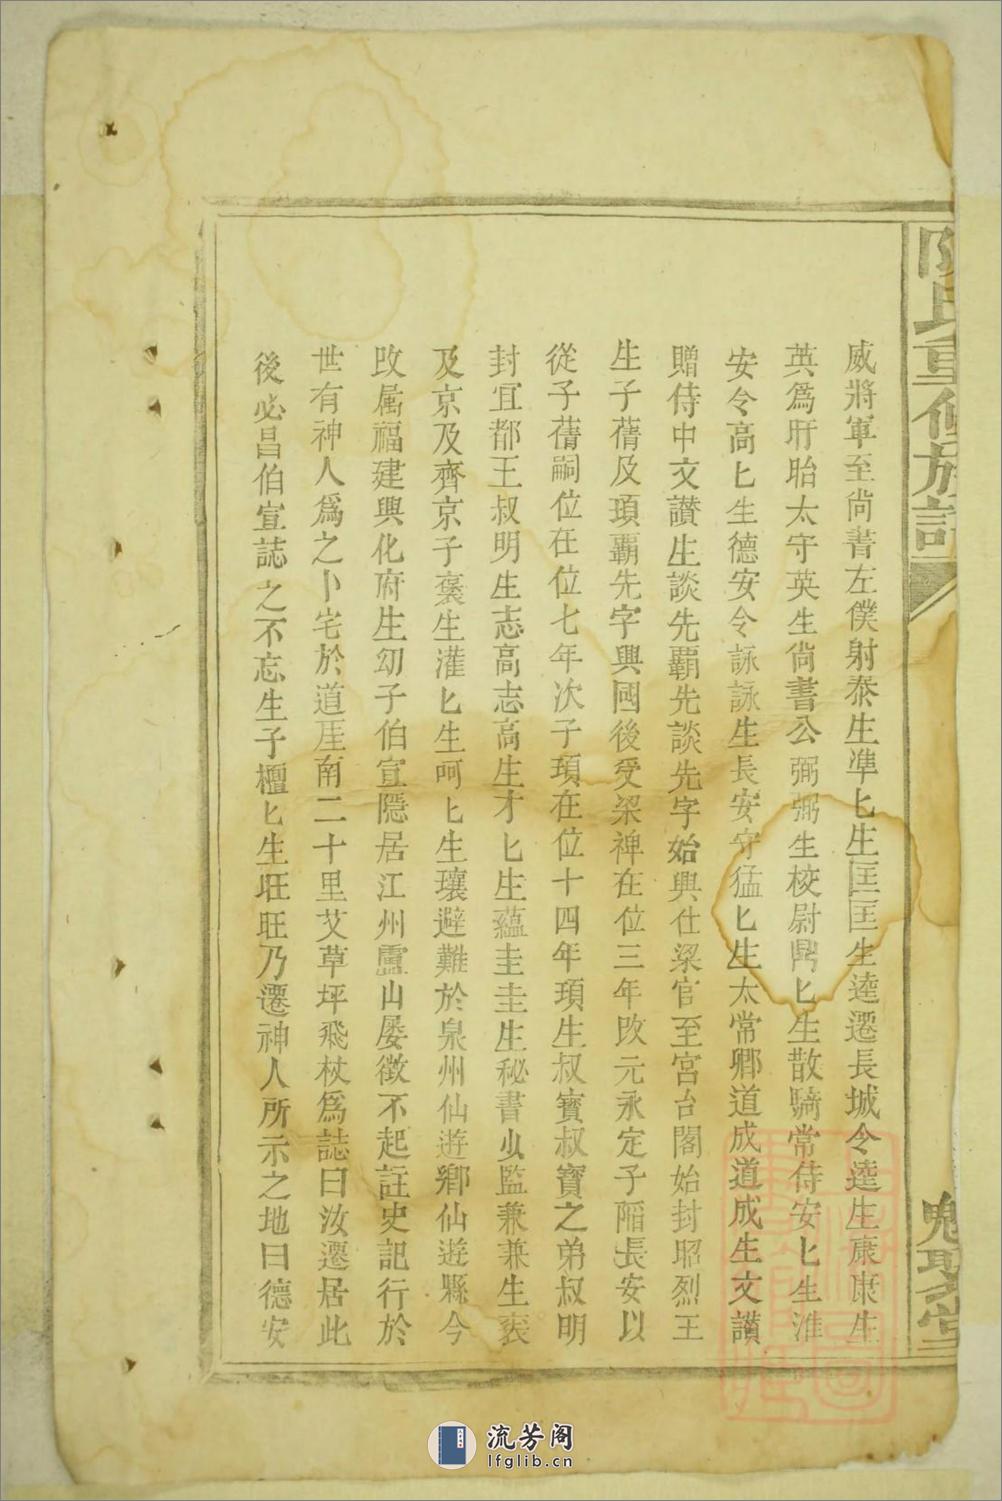 陳氏重修族譜
聚堂
威將軍至尚書左僕射泰生準匕生匡匡生逵遷長城令逵生康康生
英爲盱眙太守英生尚書公弼弼生校尉鼎匕生散騎常侍安匕生淮
安令高匕生德安令詠詠生長安守猛匕生太常卿道成道成生文讃
贈侍中文讃生談先霸先談先字始興仕梁官至宮台閣始封昭烈王
生子蒨及頊霸先字興國後受梁禅在位三年改元永定子陷長安以
從子蒨嗣位在位七年次子頊在位十四年頊生叔寳叔寳之弟叔明
封宜都王叔明生志高志高生才匕生蘊圭圭生秘書少監兼兼生裘
及京及齊京子褒生灌匕生呵匕生瓌避難於泉州仙遊鄉仙遊縣今
改属福建興化府生㓜子伯宣隱居江州盧山屡徵不起註史記行於
世有神人爲之卜宅於道厓南二十里艾草坪飛杖爲誌曰汝遷居此
後必昌伯宣誌之不忘生子檀匕生旺旺乃遷神人所示之地曰德安
流芳阁
lfglib.cn